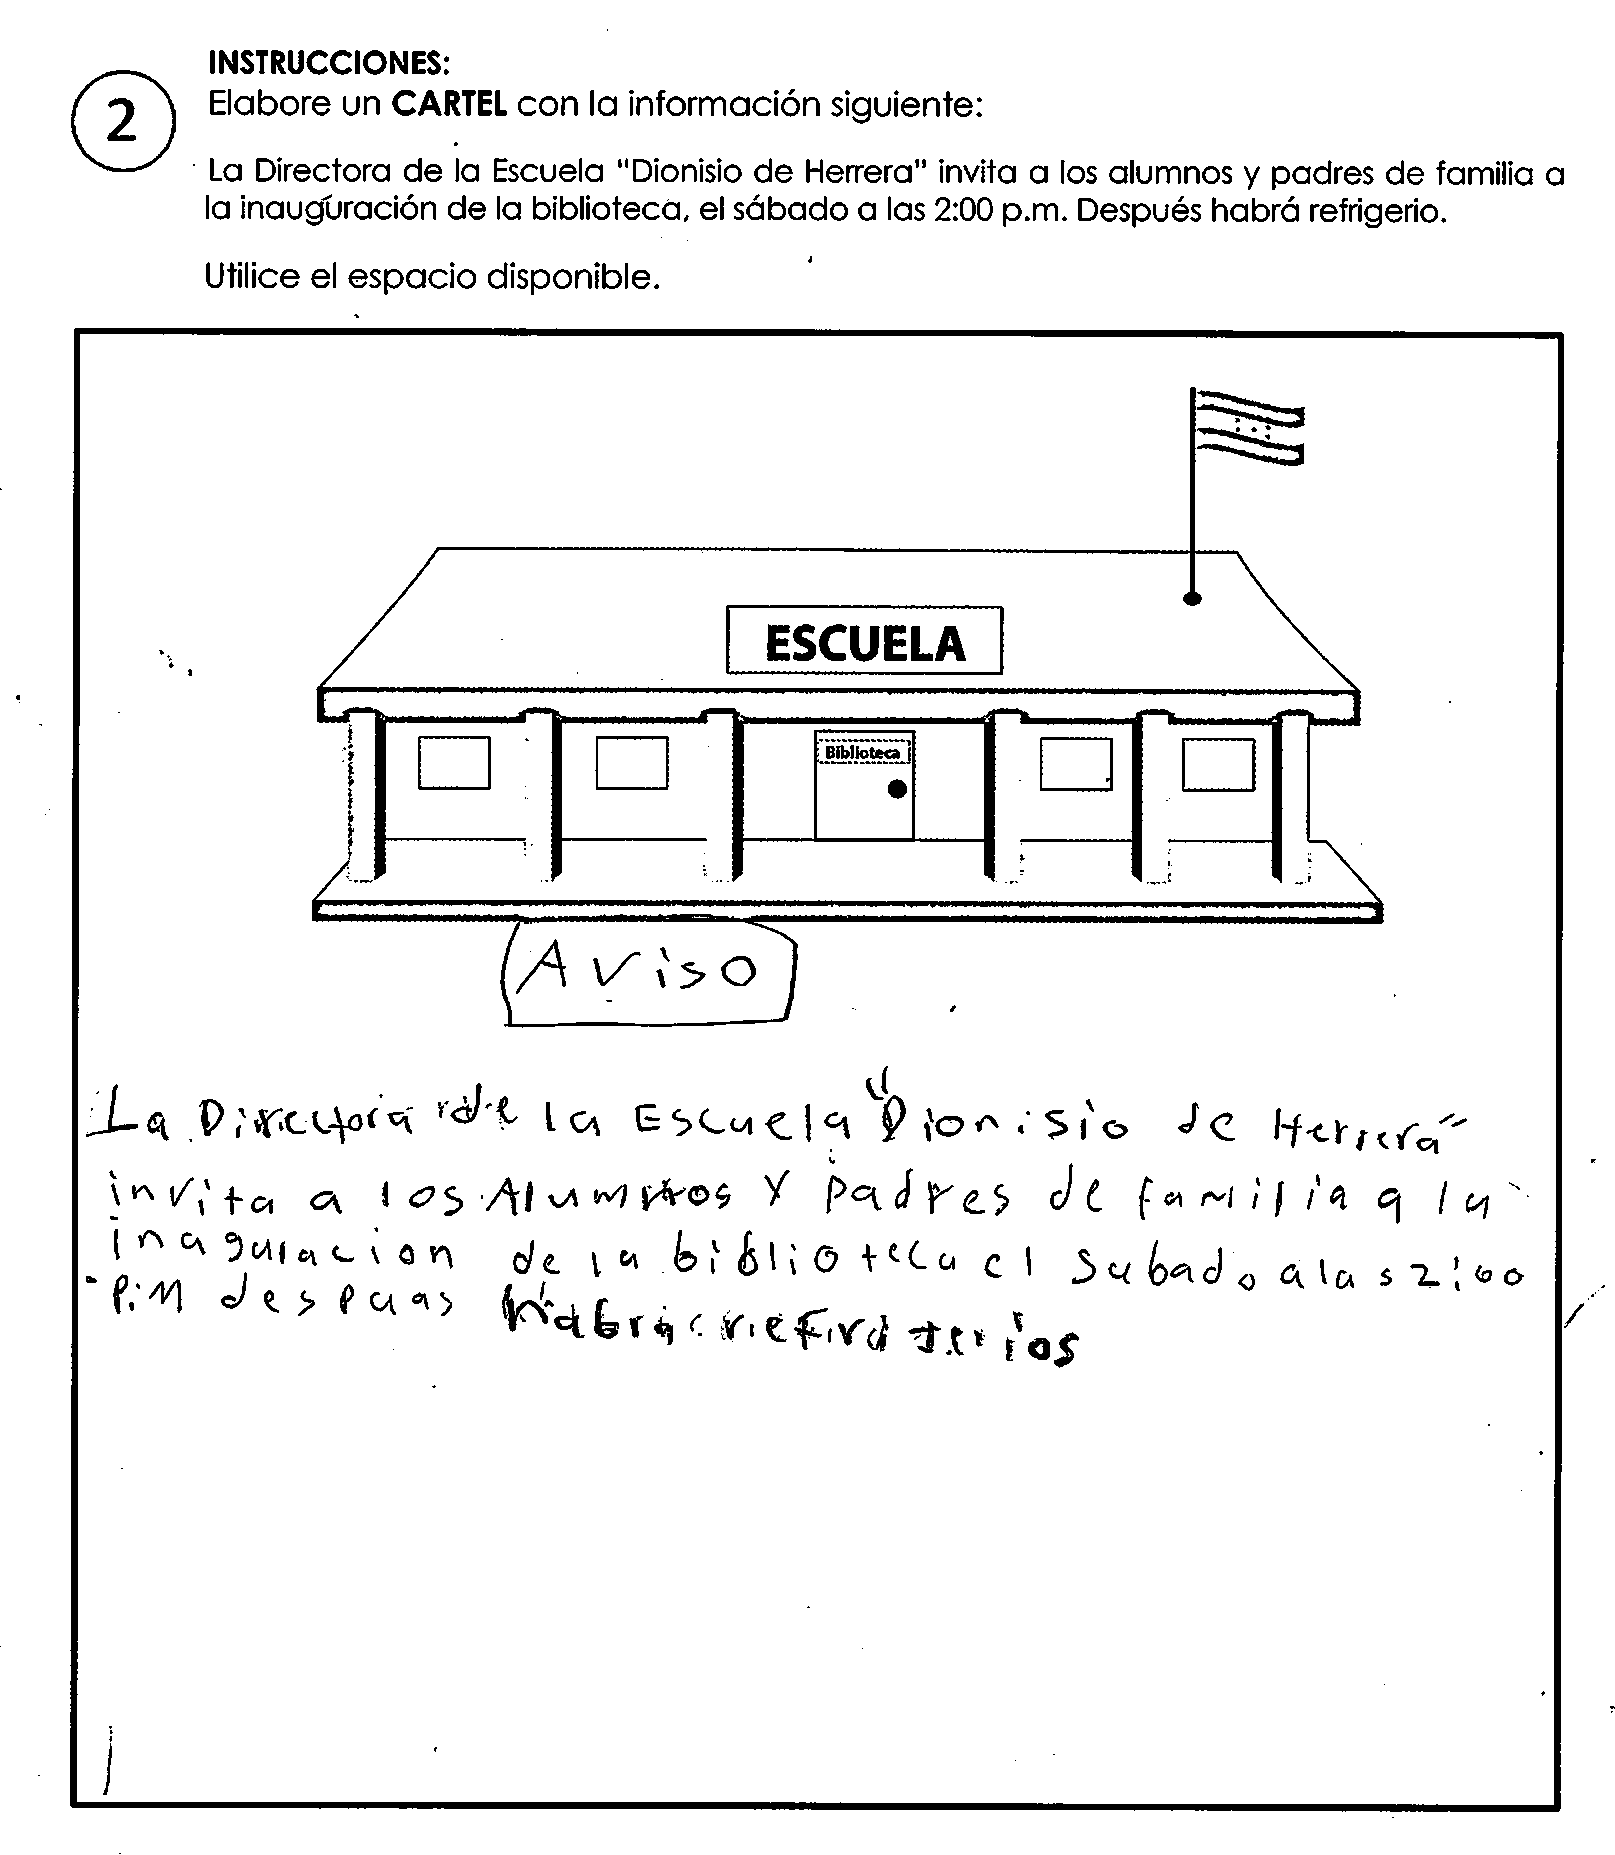 INSTRUCCIONES:
2
Elabore un CARTEL con la información siguiente:
La Directora de la Escuela "Dionisio de Herrera" invita a los alumnos y padres de familia a
la inauguración de la biblioteca, el sábado a las 2:00 p.m. Después habrá refrigerio.
Utilice el espacio disponible.
ESCUELA
Biblioteca
Aviso
La Directora de la Escuela "Dionisio de Herrera"
invita a los Alumnos y padres de familia a la
inaguracion de la biblioteca el Sabado a las 2:00
P.M despuas habra